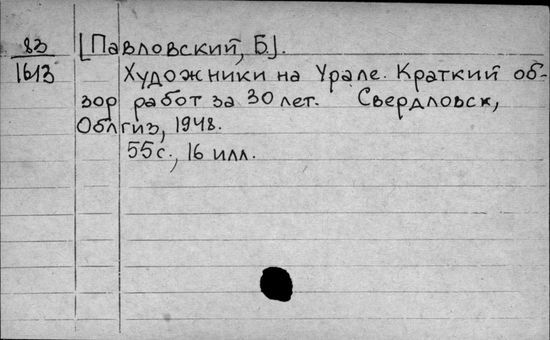 83 [Павловский, Б.].
1613 Художники на Урале. Краткий об-
зор работ за 30 лет. Свердловск,
Облгиз, 1948.
55 с., 16 илл.